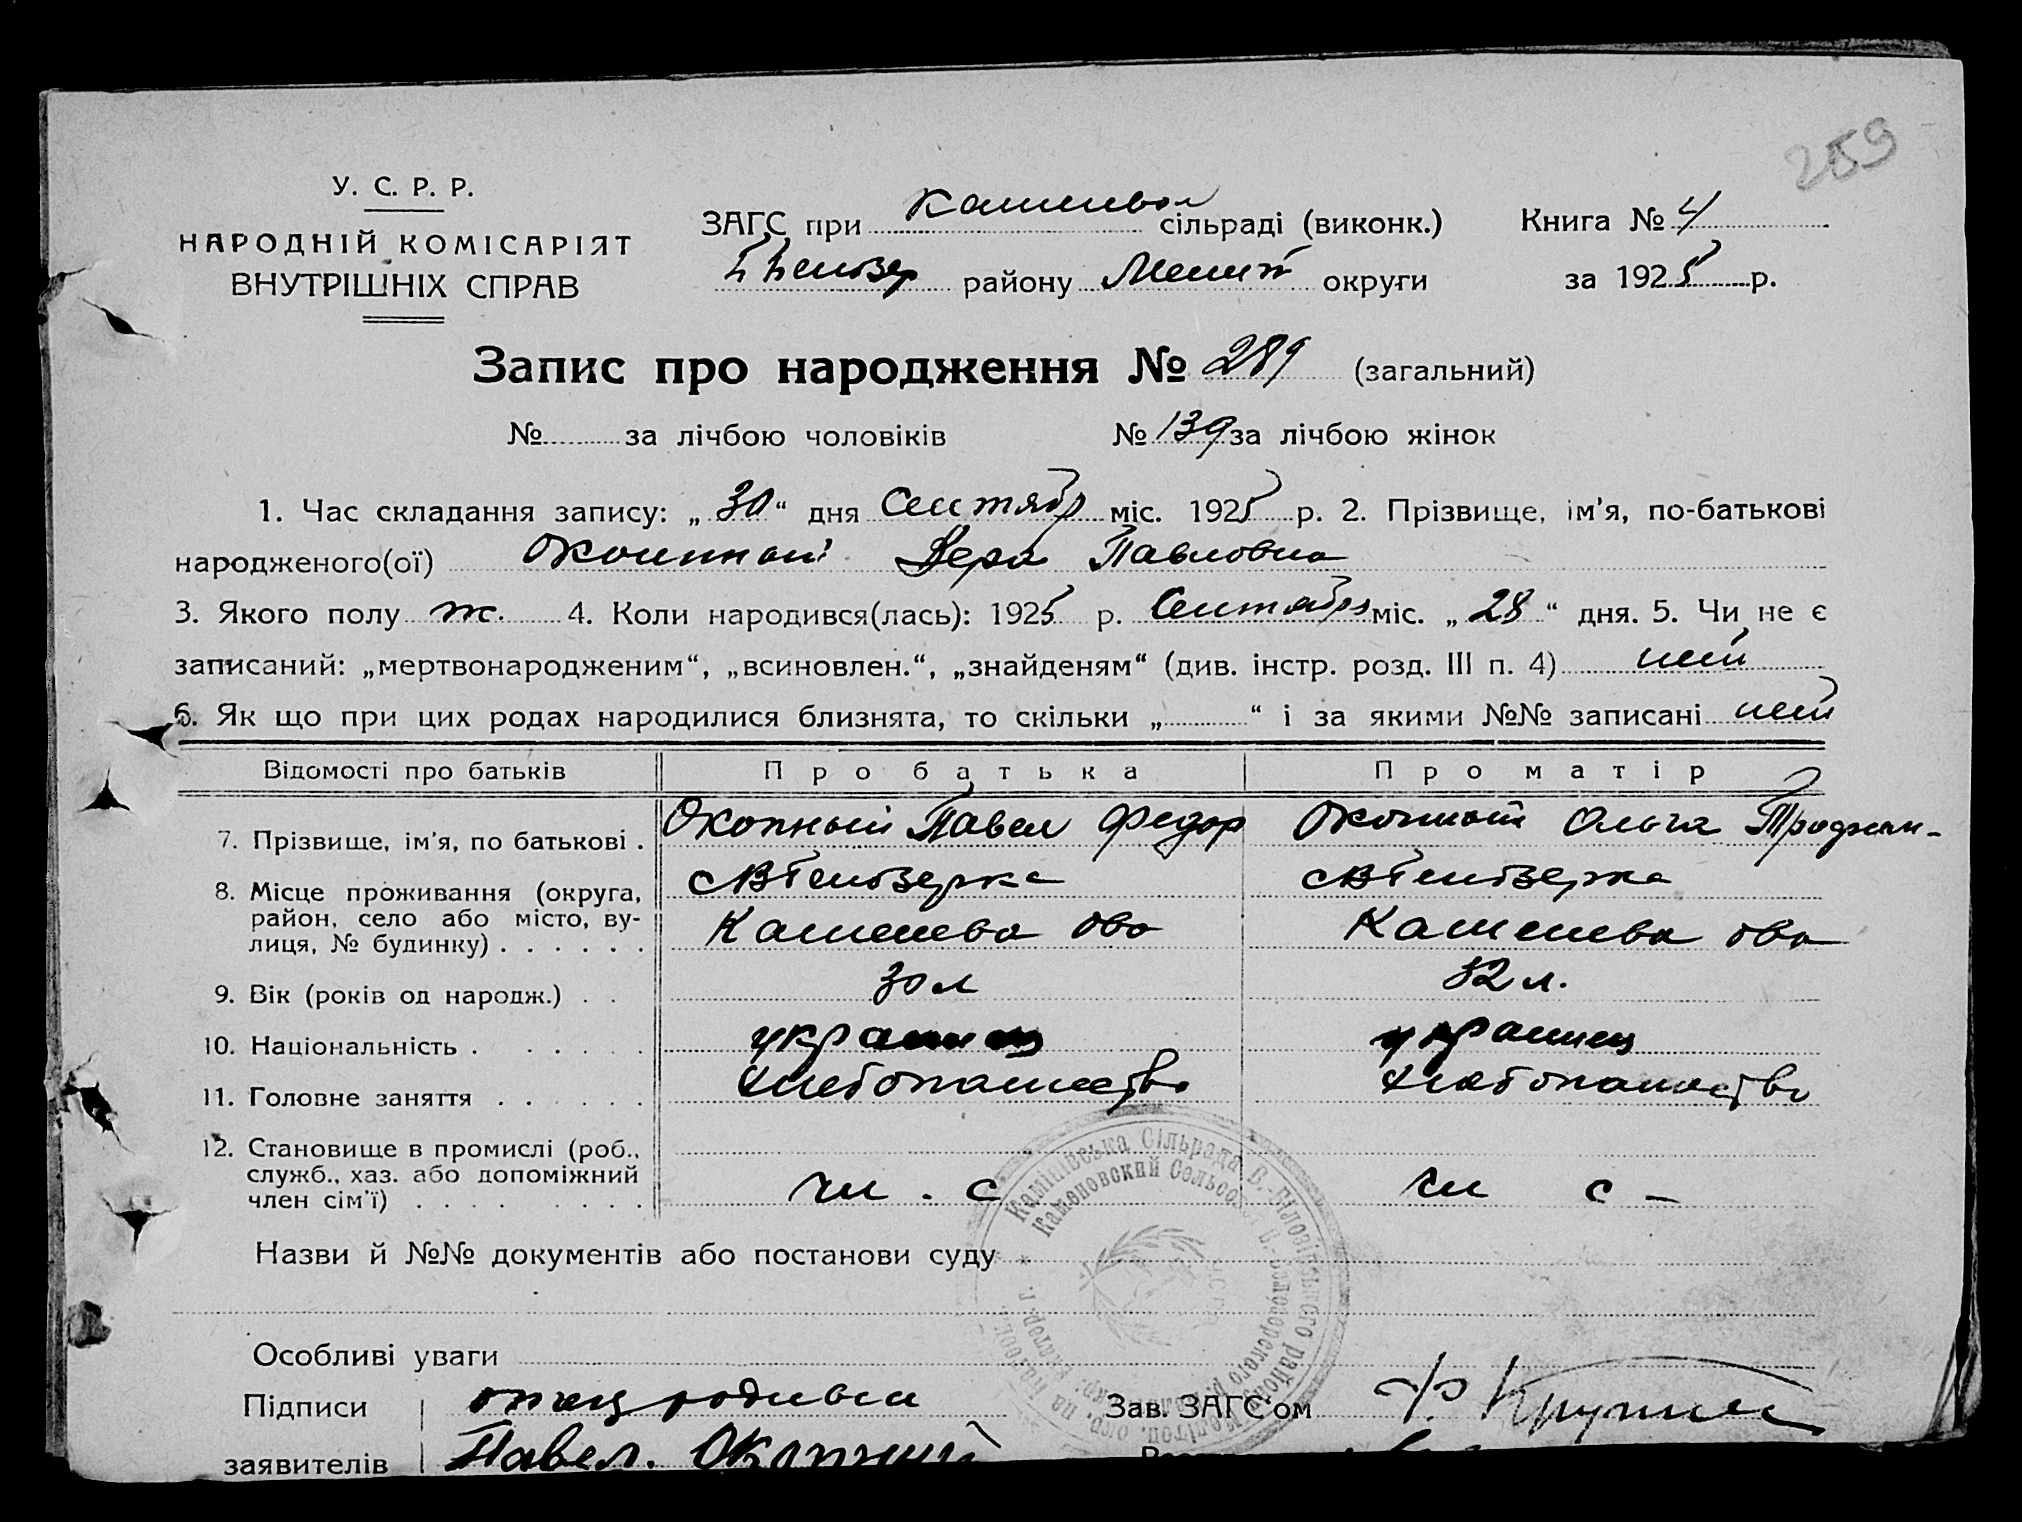 259
У. С. Р. Р.
НАРОДНІЙ КОМІСАРІЯТ
ВНУТРІШНІХ СПРАВ
ЗАГС при сільраді (виконк.)
району Мелит округи
Книга № 4
за 1925 р.
Запис про народження № 289 (загальний)
№ за лічбою чоловіків № 139 за лічбою жінок
1. Час складання запису: „ 30 “ дня Сентябр міс. 1925 р. 2. Прізвище, ім'я, по-батькові
народженого(ої) Окопний Вера Павловна
3. Якого полу ж. 4. Коли народився(лась): 1925 р. Сентября міс. „ 28 “ дня. 5. Чи не є
записаний: „мертвонародженим“, „всиновлен.“, „знайденям“ (див. інстр. розд. III п. 4) нет
6. Як що при цих родах народилися близнята, то скільки „ “ і за якими №№ записані нет
Відомості про батьків Про батька Про матір
7. Прізвище, ім'я, по батькові . Окопный Павел Федор Окопный Ольга Трофим-
8. Місце проживання (округа, район, село або місто, вулиця, № будинку) . . . . . .
Каменева ова Каменева ова
9. Вік (років од народж.) . . 30 л 32 л.
10. Національність . . . . . . украинец украинец
11. Головне заняття . . . . . хлебопашество хлебопашество
12. Становище в промислі (роб., служб., хаз. або допоміжний член сім'ї) . . . . . . . .
чл . с чл с –
Назви й №№ документів або постанови суду
Кам'янівська Сільрада В.-Білозірського району
Каменовский Сельсовет
Особливі уваги
Підписи заявителів отец родивш Павел. Окопний
Зав. ЗАГС'ом